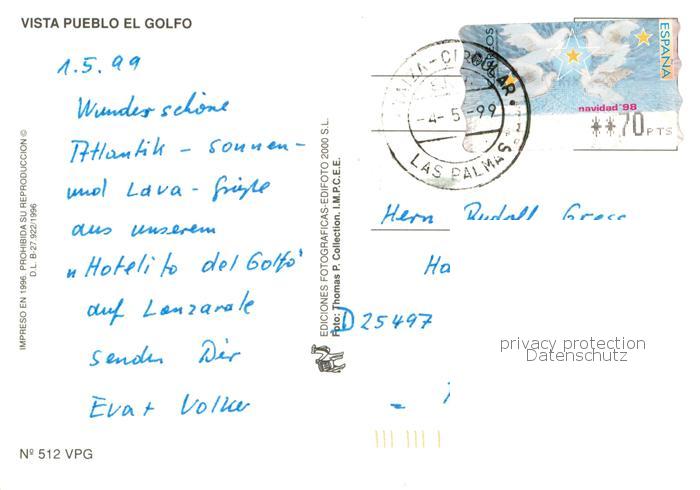 VISTA PUEBLO EL GOLFO
1.5.99
Wunderschöne
Atlantik - Sonnen-
und Lava - Grüße
aus unserem
"Hotelito del Golfo"
auf Lanzarote
senden Dir
Eva + Volker
Nº 512 VPG
IMPRESO EN 1996. PROHIBIDA SU REPRODUCCION ©
D.L. B-27.922/1996
EDICIONES FOTOGRAFICAS-EDIFOTO 2000 S.L.
Foto: Thomas P. Collection. I.M.P.C.E.E.
ESPAÑA
navidad'98
**70 PTS
-4-5-99
LAS PALMAS
Herrn Rudolf
Ha
D 25497
privacy protection
Datenschutz